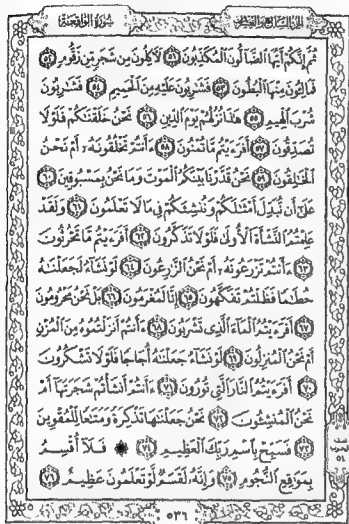 الجزء السابع والعشرون سورة الواقعة
ثُمَّ إِنَّكُمْ أَيُّهَا ٱلضَّآلُّونَ ٱلْمُكَذِّبُونَ ٥١ لَأٓكِلُونَ مِن شَجَرٍ مِّن زَقُّومٍ ٥٢
فَمَالِـُٔونَ مِنْهَا ٱلْبُطُونَ ٥٣ فَشَٰرِبُونَ عَلَيْهِ مِنَ ٱلْحَمِيمِ ٥٤ فَشَٰرِبُونَ
شُرْبَ ٱلْهِيمِ ٥٥ هَٰذَا نُزُلُهُمْ يَوْمَ ٱلدِّينِ ٥٦ نَحْنُ خَلَقْنَٰكُمْ فَلَوْلَا
تُصَدِّقُونَ ٥٧ أَفَرَءَيْتُم مَّا تُمْنُونَ ٥٨ ءَأَنتُمْ تَخْلُقُونَهُۥٓ أَمْ نَحْنُ
ٱلْخَٰلِقُونَ ٥٩ نَحْنُ قَدَّرْنَا بَيْنَكُمُ ٱلْمَوْتَ وَمَا نَحْنُ بِمَسْبُوقِينَ ٦٠
عَلَىٰٓ أَن نُّبَدِّلَ أَمْثَٰلَكُمْ وَنُنشِئَكُمْ فِى مَا لَا تَعْلَمُونَ ٦١ وَلَقَدْ
عَلِمْتُمُ ٱلنَّشْأَةَ ٱلْأُولَىٰ فَلَوْلَا تَذَكَّرُونَ ٦٢ أَفَرَءَيْتُم مَّا تَحْرُثُونَ
٦٣ ءَأَنتُمْ تَزْرَعُونَهُۥٓ أَمْ نَحْنُ ٱلزَّٰرِعُونَ ٦٤ لَوْ نَشَآءُ لَجَعَلْنَٰهُ
حُطَٰمًا فَظَلْتُمْ تَفَكَّهُونَ ٦٥ إِنَّا لَمُغْرَمُونَ ٦٦ بَلْ نَحْنُ مَحْرُومُونَ
٦٧ أَفَرَءَيْتُمُ ٱلْمَآءَ ٱلَّذِى تَشْرَبُونَ ٦٨ ءَأَنتُمْ أَنزَلْتُمُوهُ مِنَ ٱلْمُزْنِ
أَمْ نَحْنُ ٱلْمُنزِلُونَ ٦٩ لَوْ نَشَآءُ جَعَلْنَٰهُ أُجَاجًا فَلَوْلَا تَشْكُرُونَ
٧٠ أَفَرَءَيْتُمُ ٱلنَّارَ ٱلَّتِى تُورُونَ ٧١ ءَأَنتُمْ أَنشَأْتُمْ شَجَرَتَهَآ أَمْ
نَحْنُ ٱلْمُنشِـُٔونَ ٧٢ نَحْنُ جَعَلْنَٰهَا تَذْكِرَةً وَمَتَٰعًا لِّلْمُقْوِينَ
٧٣ فَسَبِّحْ بِٱسْمِ رَبِّكَ ٱلْعَظِيمِ ٧٤ ۞ فَلَآ أُقْسِمُ
بِمَوَٰقِعِ ٱلنُّجُومِ ٧٥ وَإِنَّهُۥ لَقَسَمٌ لَّوْ تَعْلَمُونَ عَظِيمٌ ٧٦
٥٣٦